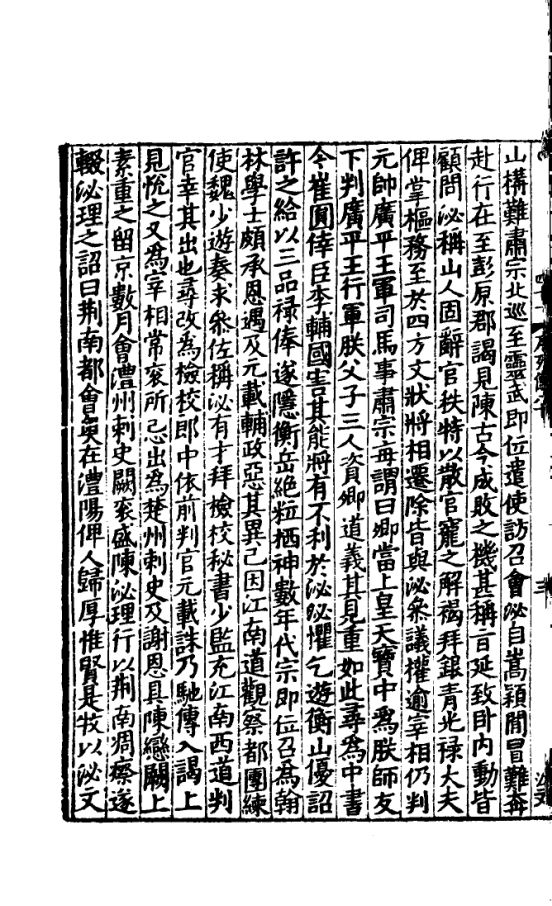 山構難肅宗北巡至靈武即位遣使訪召會泌自嵩潁間冒難奔
赴行在至彭原郡謁見陳古今成敗之機甚稱旨延致卧内動皆
顧問泌稱山人固辭官秩特以散官寵之解褐拜銀青光禄大夫
俾掌樞務至於四方文狀將相遷除皆與泌叅議權逾宰相仍判
元帥廣平王軍司馬事肅宗每謂曰卿當上皇天寶中為朕師友
下判廣平王行軍朕父子三人資卿道義其見重如此尋為中書
令崔圓倖臣李輔國害其能將有不利於泌泌懼乞遊衡山優詔
許之給以三品禄俸遂隱衡岳絶粒栖神數年代宗即位召為翰
林學士頗承恩遇及元載輔政惡其異己因江南道觀察都團練
使魏少遊奏求叅佐稱泌有才拜檢校秘書少監充江南西道判
官幸其出也尋改為檢校郎中依前判官元載誅乃馳傳入謁上
見悅之又為宰相常衮所忌出為楚州刺史及謝恩具陳戀闕上
素重之留京數月會澧州刺史闕衮盛陳泌理行以荆南凋瘵遂
輟泌理之詔曰荆南都會粤在澧陽俾人歸厚惟賢是牧以泌文